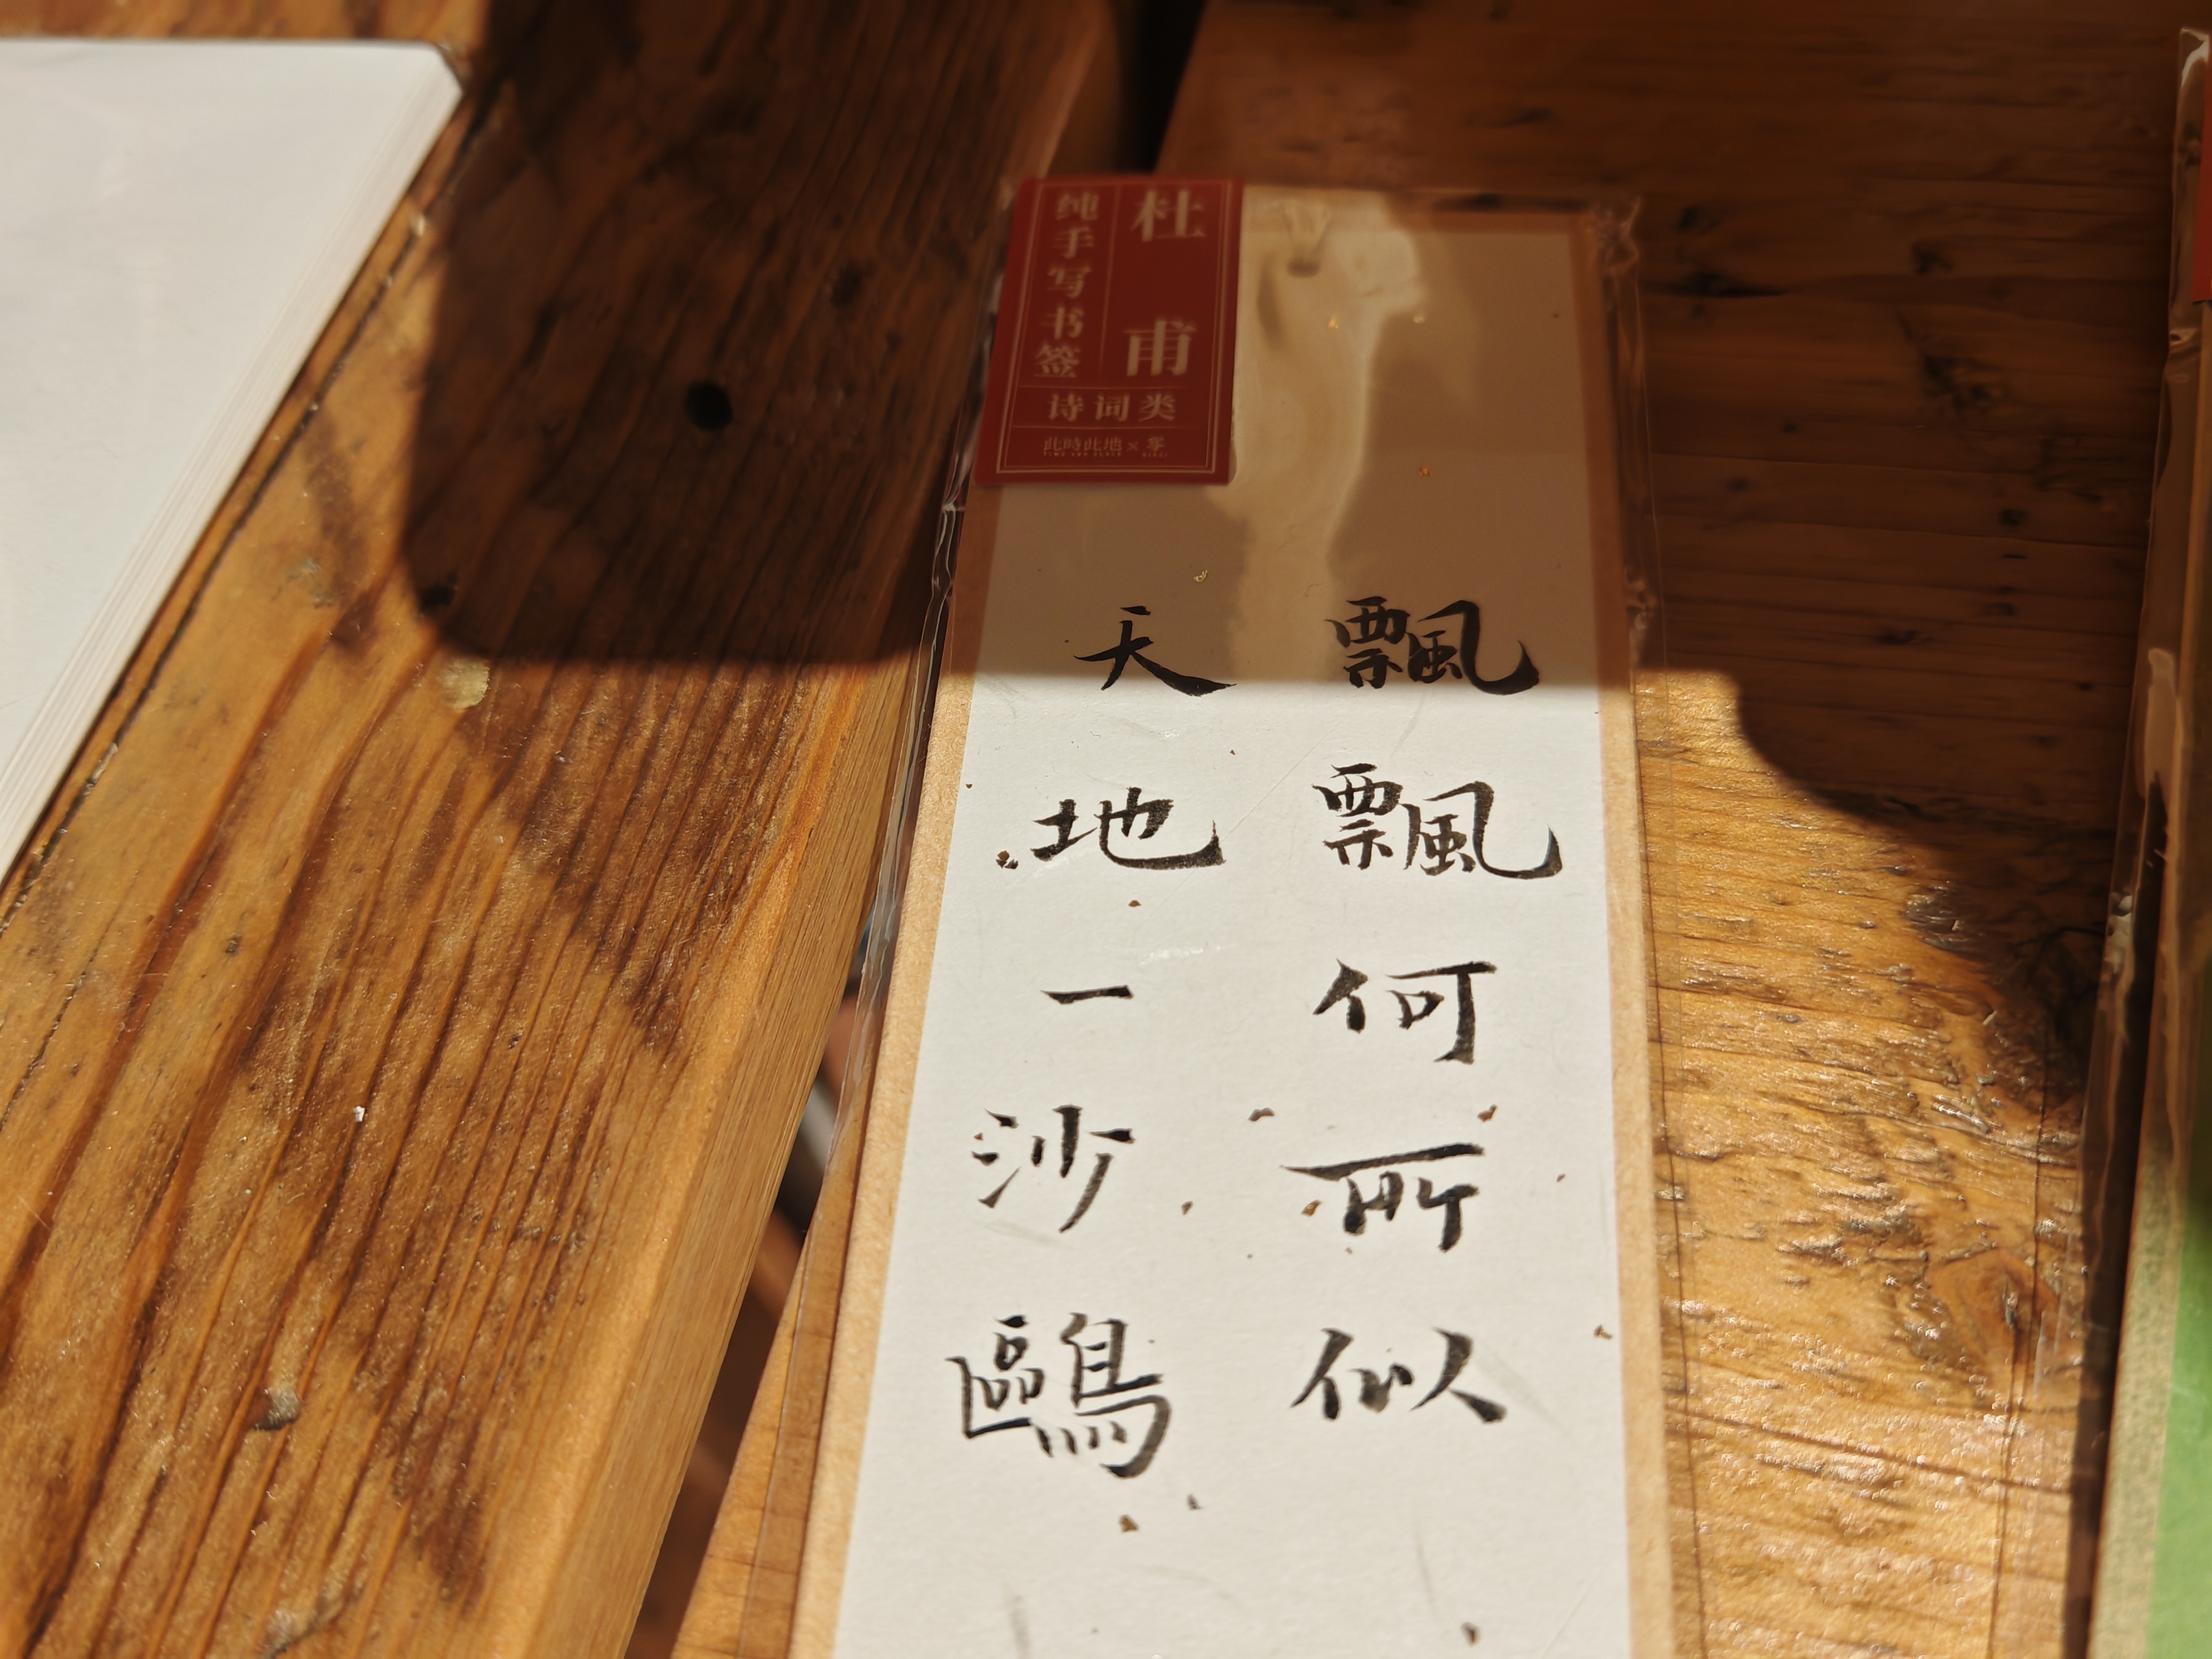 杜甫
纯手写书签
诗词类
此時此地×零
飄飄何所似
天地一沙鷗